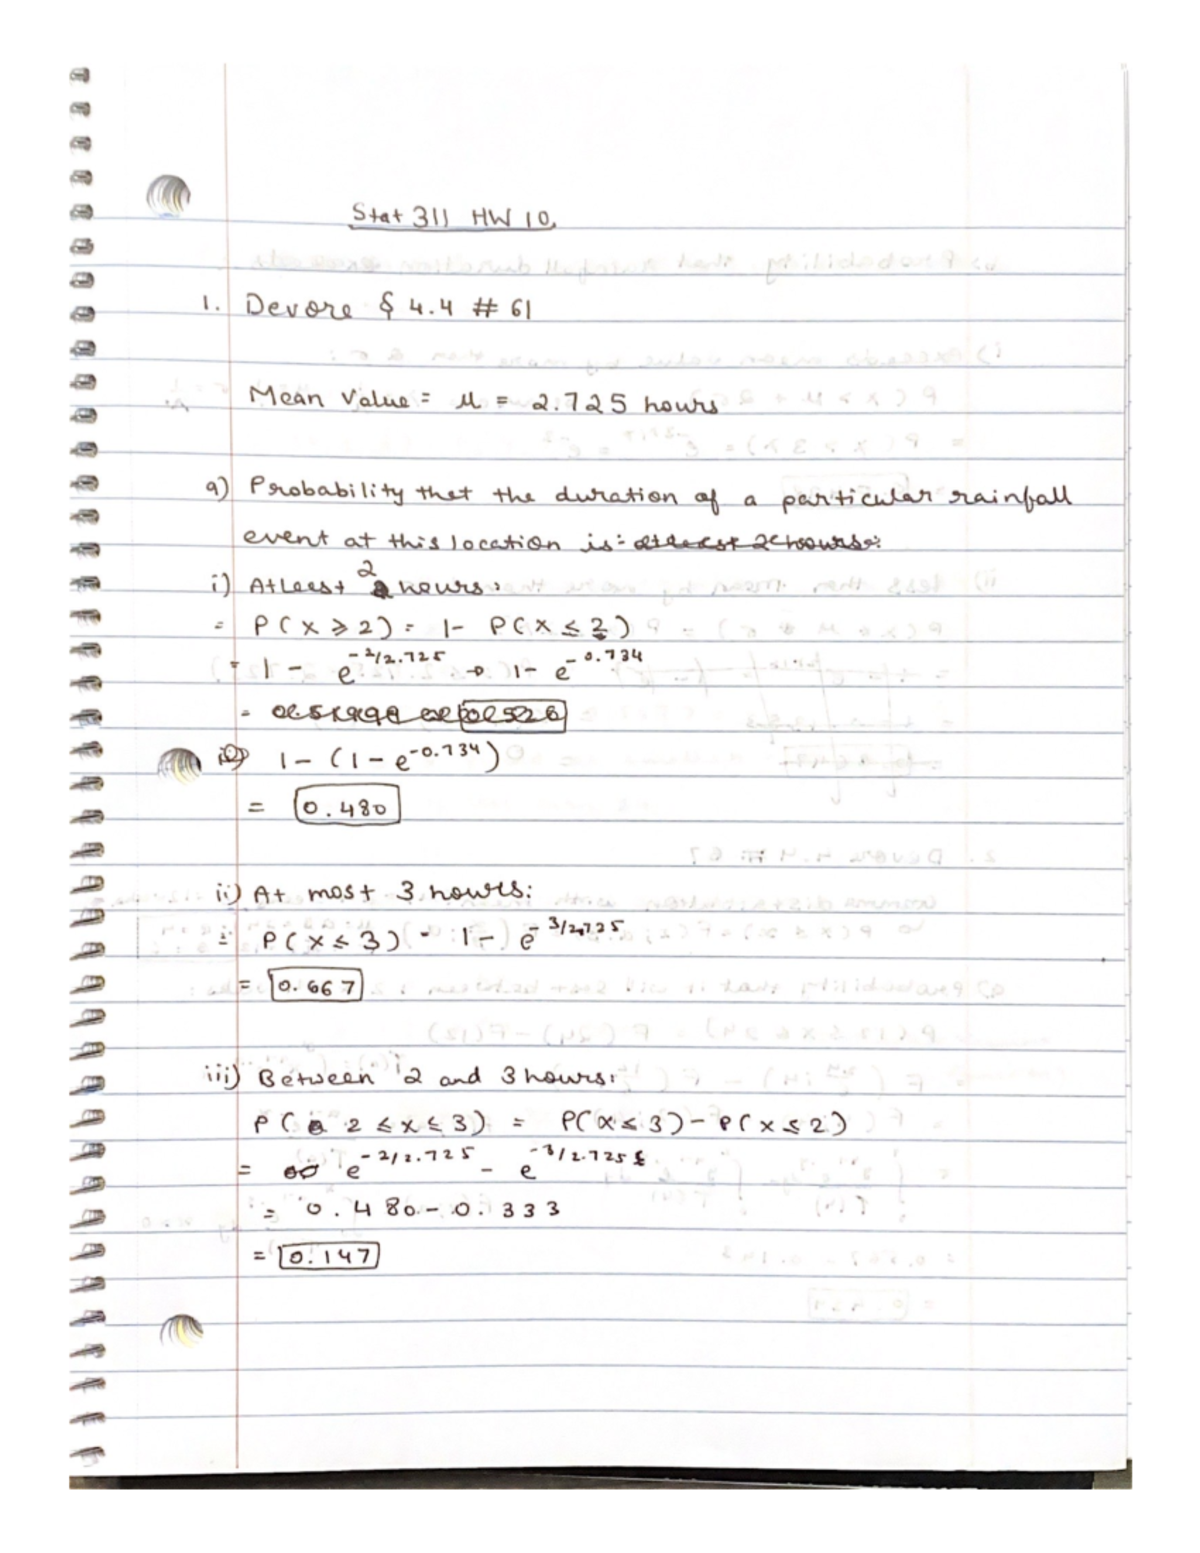 Stat 311 HW 10.
1. Devore § 4.4 # 61
Mean Value = μ = 2.725 hours
a) Probability that the duration of a particular rainfall
event at this location is: atleast 2 hours:
i) Atleast 2 hours:
= P(x ≥ 2) = 1 - P(x ≤ 2)
= 1 - e^-2/2.725 → 1 - e^-0.734
1 - (1 - e^-0.734)
= 0.480
ii) At most 3 hours:
= P(x ≤ 3) = 1 - e^-3/2.725
= 0.667
iii) Between 2 and 3 hours:
P(2 ≤ x ≤ 3) = P(x ≤ 3) - P(x ≤ 2)
= e^-2/2.725 - e^-3/2.725
= 0.480 - 0.333
= 0.147